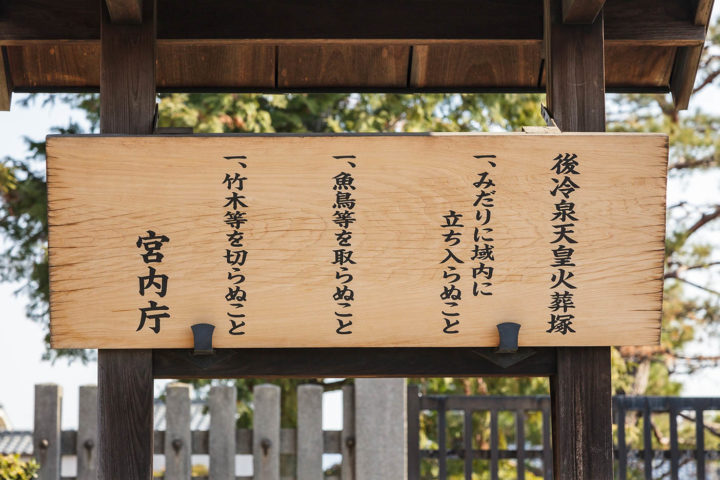 後冷泉天皇火葬塚
一、みだりに域内に
立ち入らぬこと
一、魚鳥等を取らぬこと
一、竹木等を切らぬこと
宮内庁